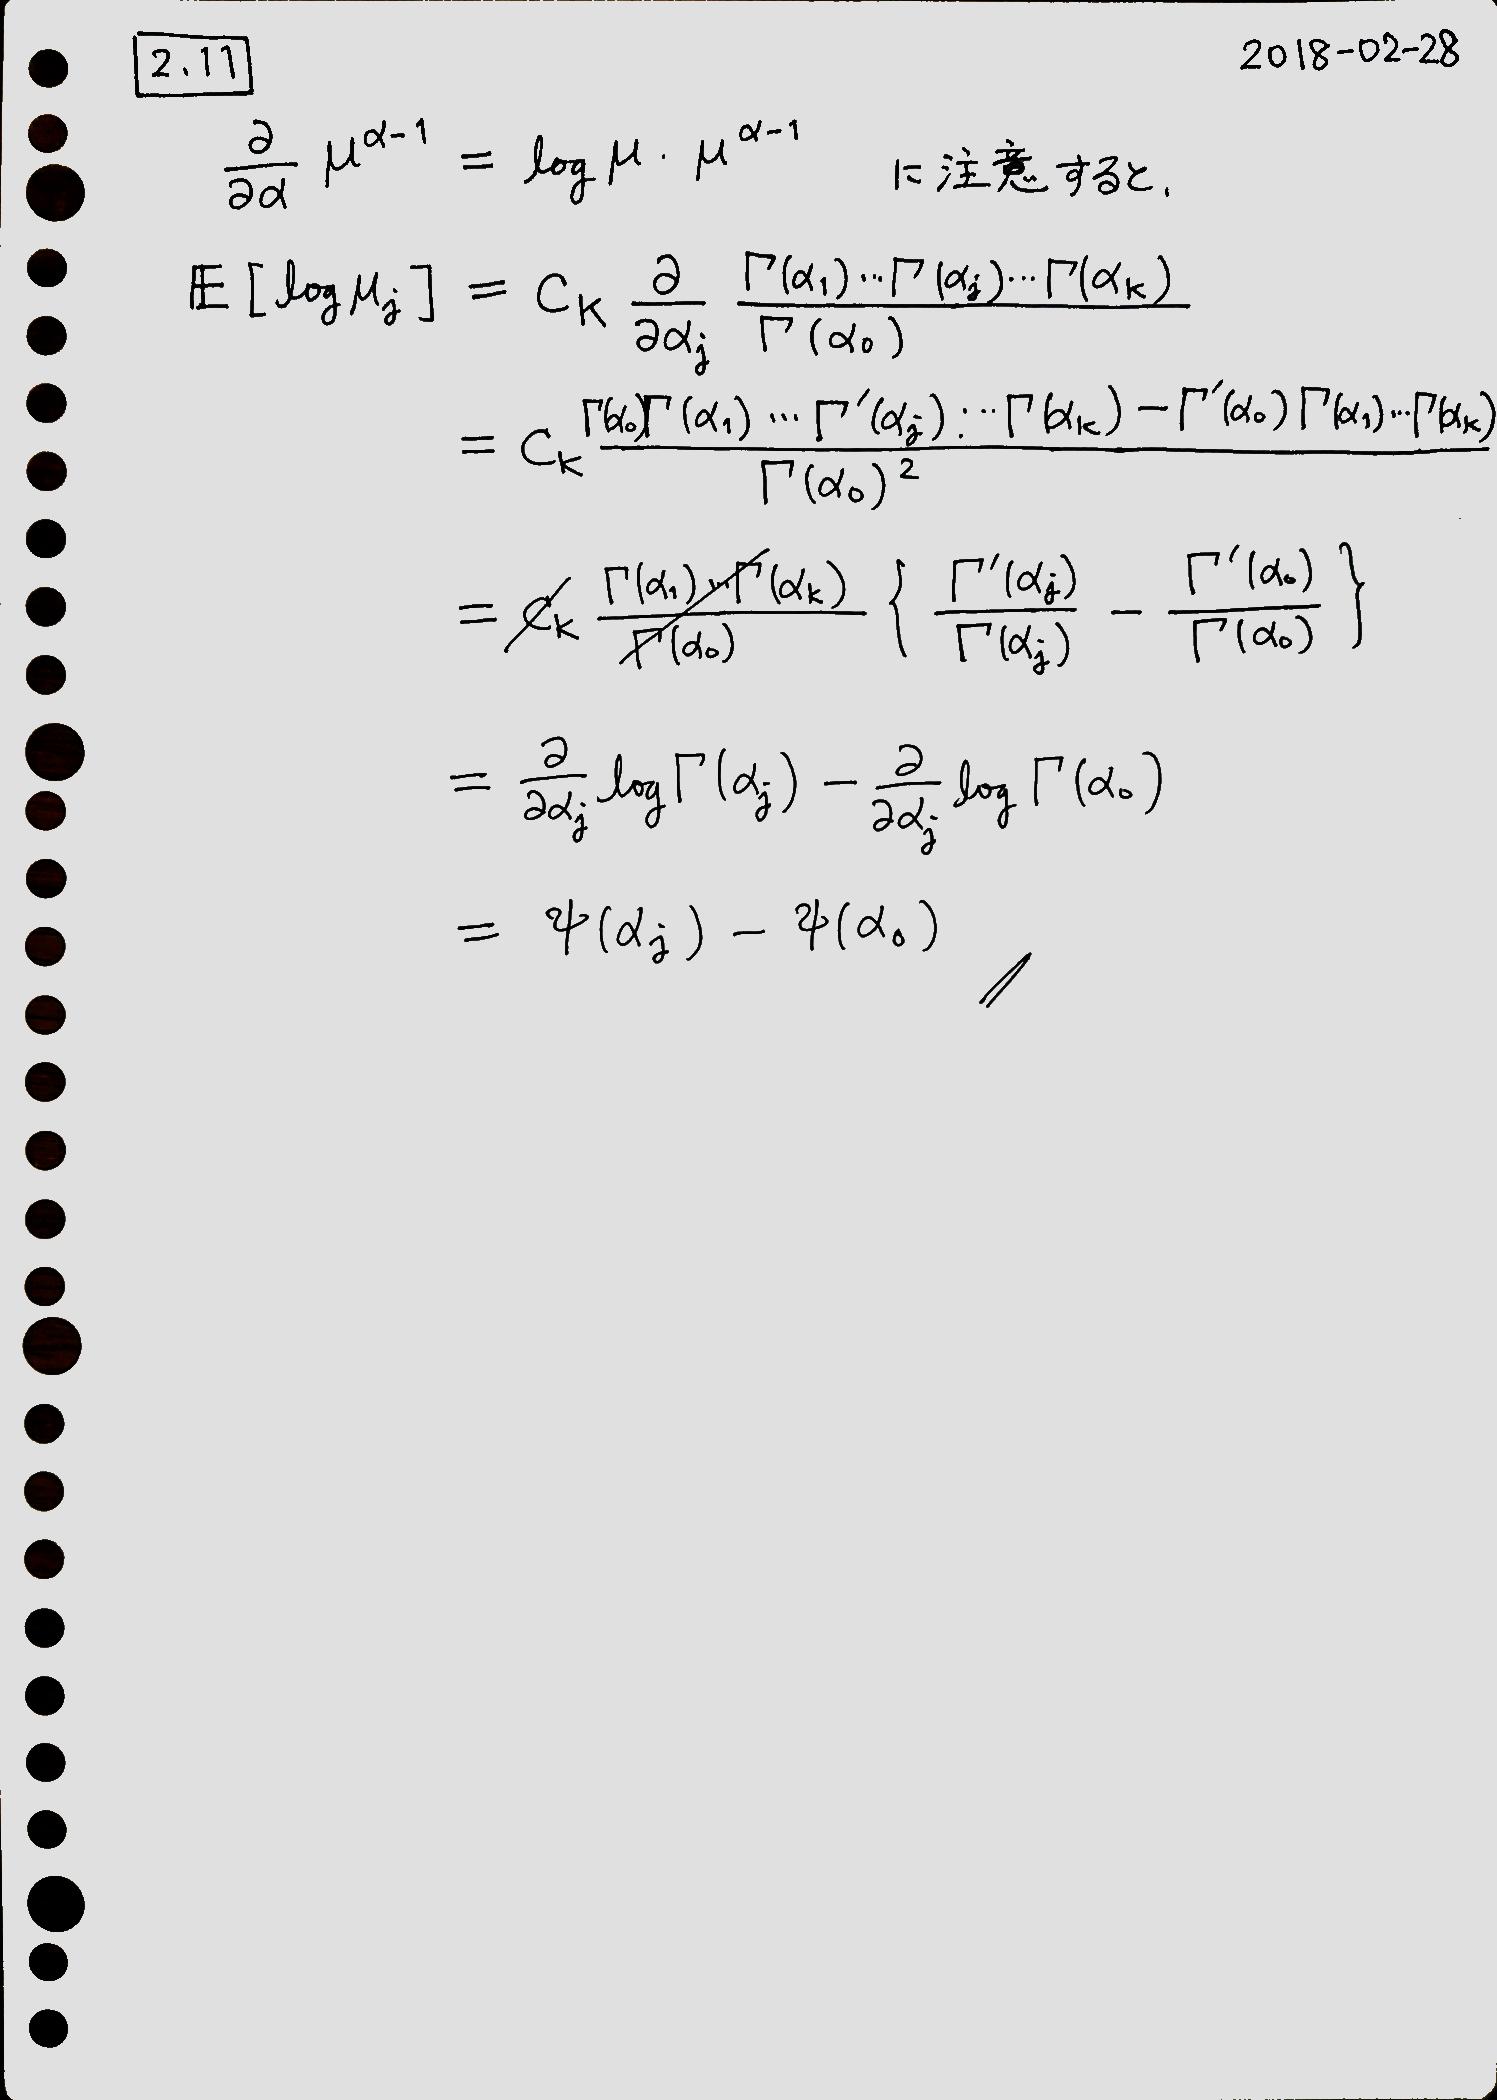 2.11 2018-02-28
∂/∂α μ^{α-1} = log μ · μ^{α-1} に注意すると,
𝔼[log μ_j] = C_K ∂/∂α_j Γ(α_1)…Γ(α_j)…Γ(α_K) / Γ(α_0)
= C_K (Γ(α_0)Γ(α_1)…Γ'(α_j)…Γ(α_K) − Γ'(α_0)Γ(α_1)…Γ(α_K)) / Γ(α_0)^2
= C_K Γ(α_1)…Γ(α_K) / Γ(α_0) { Γ'(α_j)/Γ(α_j) − Γ'(α_0)/Γ(α_0) }
= ∂/∂α_j log Γ(α_j) − ∂/∂α_j log Γ(α_0)
= ψ(α_j) − ψ(α_0)